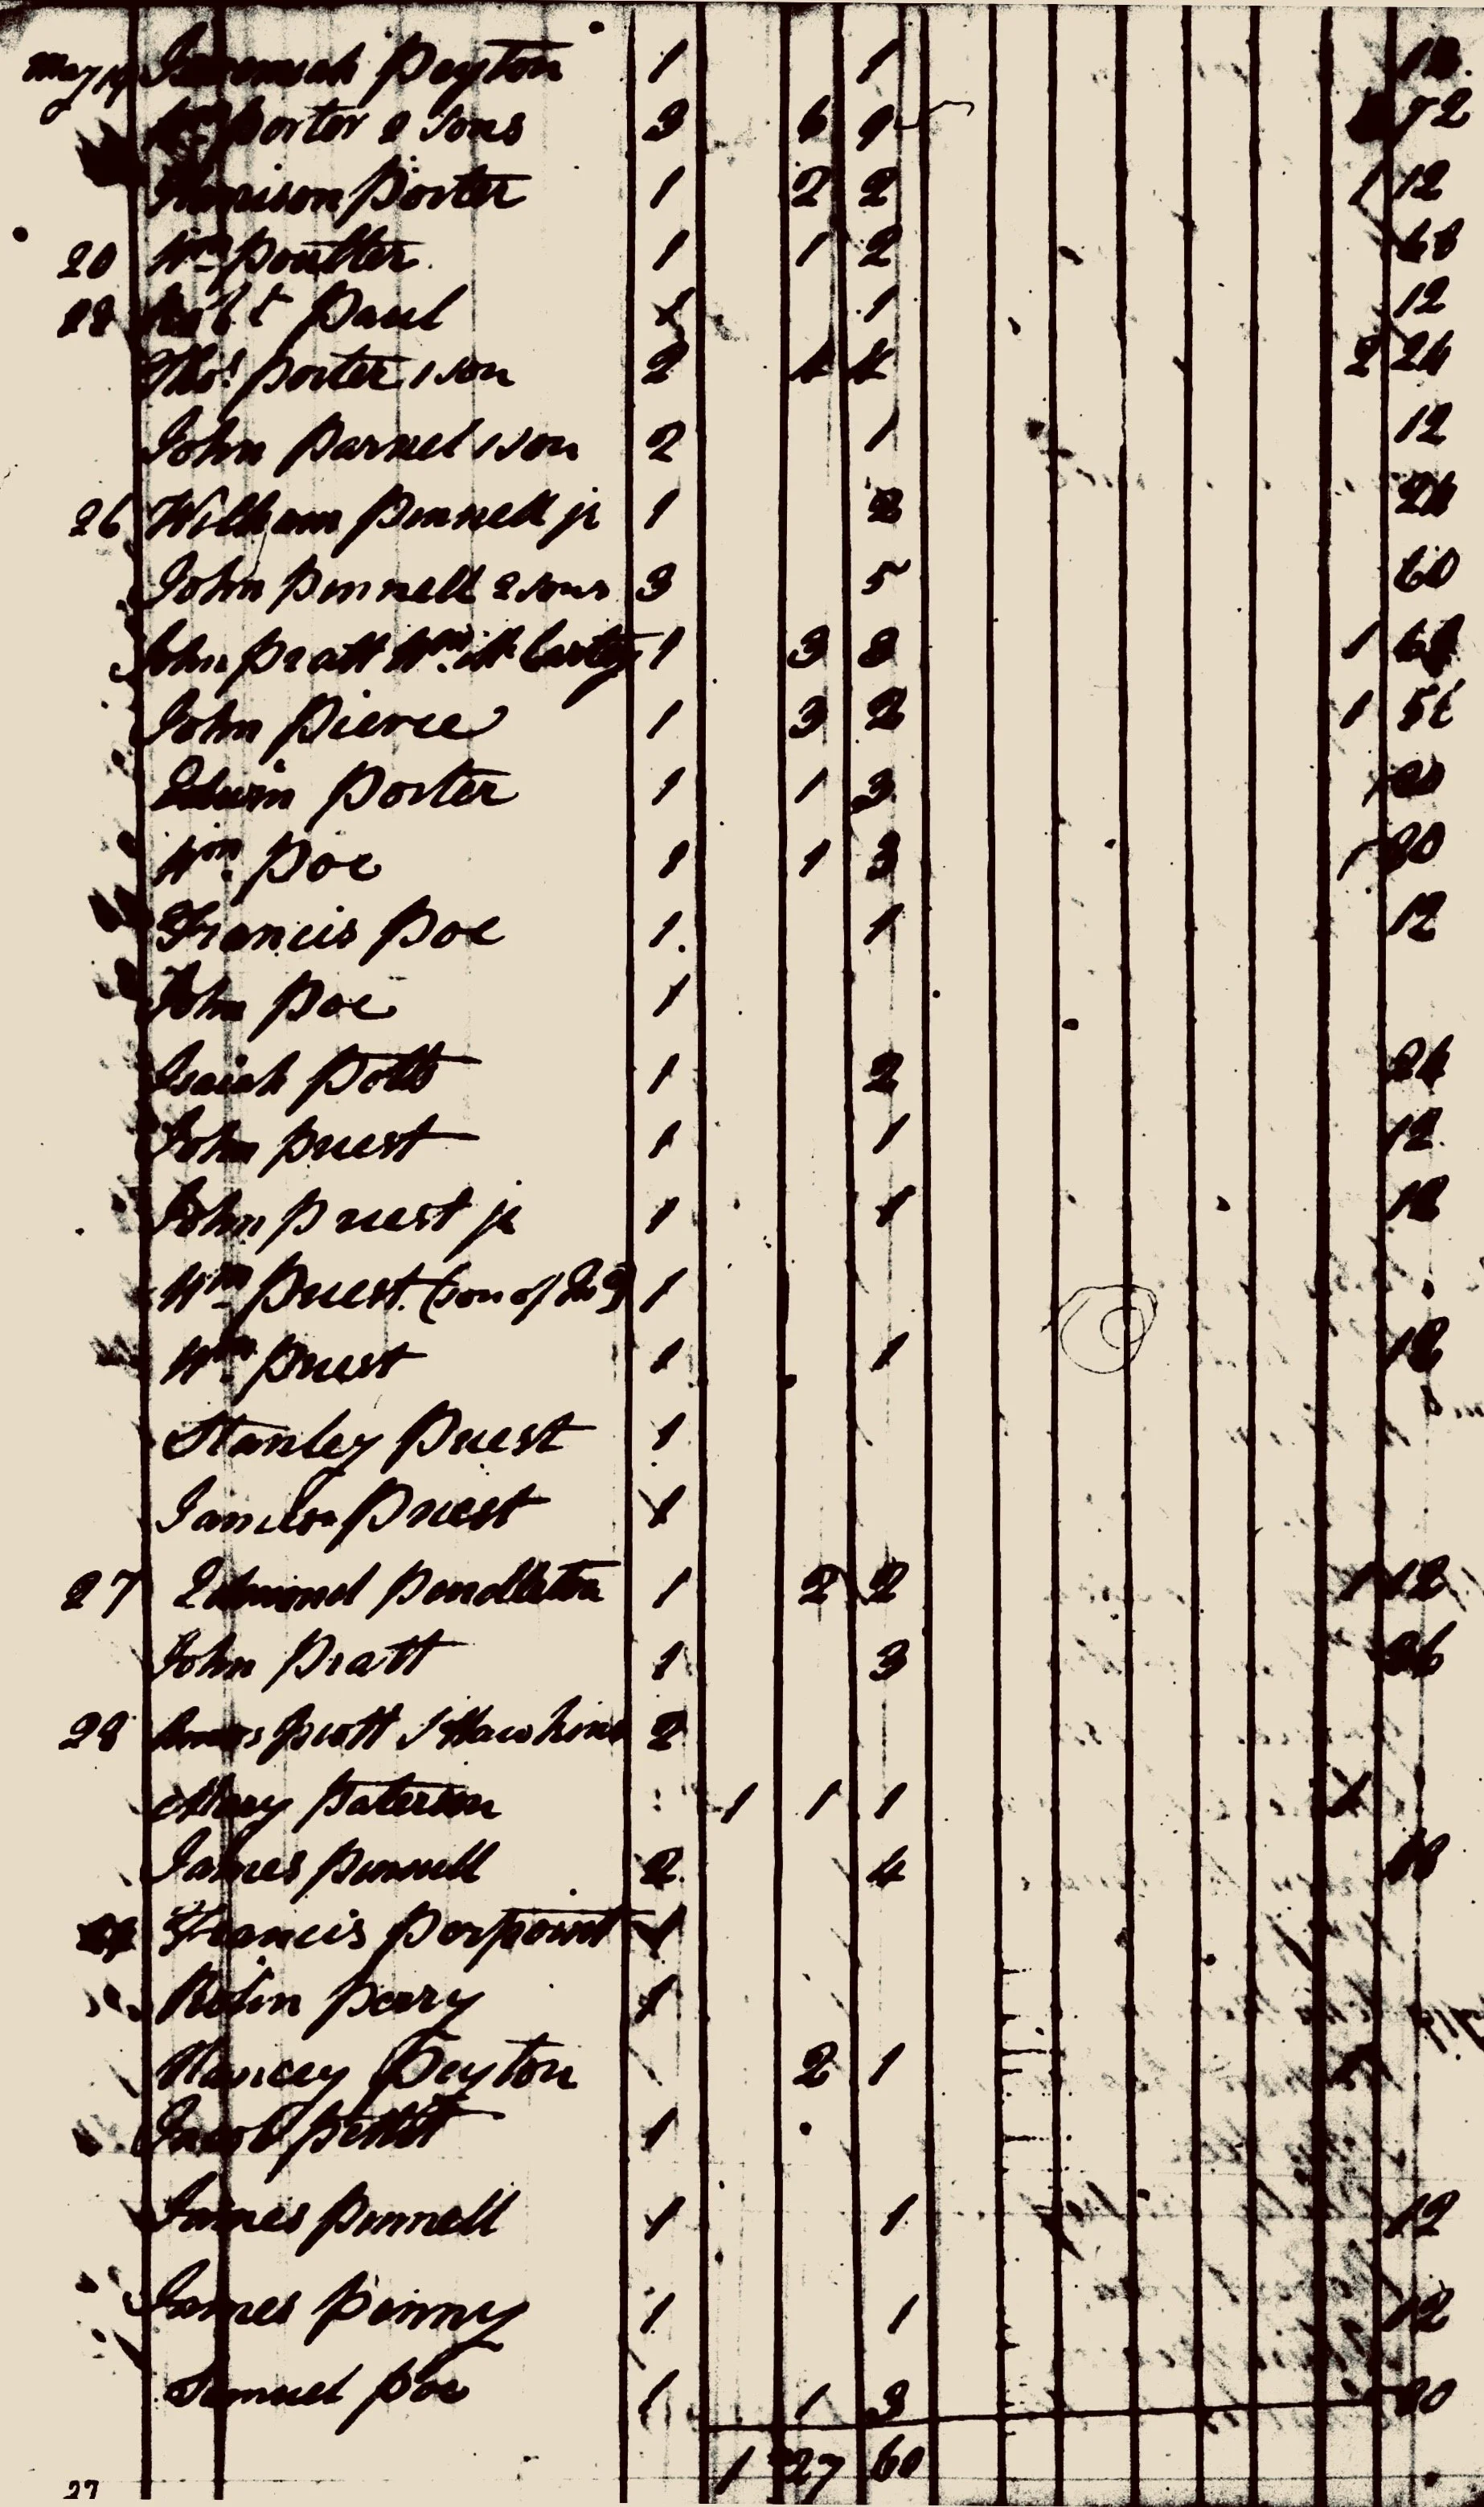 May 19 Jeremiah Peyton 1 1 12
Wm Porter 2 sons 3 6 9 72
Porter 1 2 2 1 12
20 Wm Poulter 1 1 2 68
Robt Paul 1 1 12
Thos Porter 1 son 2 4 4 2 24
John Parnel 1 son 2 1 12
26 William Pinnell jr 1 2 24
John Pinnell 2 sons 3 5 60
John Pratt Wm McCarty 1 3 1
John Pierce 1 3 2 1 56
Edwin Porter 1 1 3 80
Wm Poe 1 1 3 80
Francis Poe 1 1 12
John Poe 1
Isaiah Potts 1 2 24
John Priest 1 1 12
John Priest jr 1 1 12
Wm Priest (son of 1
Wm Priest 1 1 12
Stanley Priest 1
Priest 1
27 Edmond Pendleton 1 2 2 1 12
John Pratt 1 3 36
28 Hawkins 2
Mary Paterson 1 1 1
James Pinnell 2 4 48
Francis Perpoint 1
Robin Perry 1
Nancey Peyton 2 1
Jacob Pettit 1
James Pinnell 1 1 12
James Pinny 1 1 12
Samuel Poe 1 1 3 80
1 27 60
27